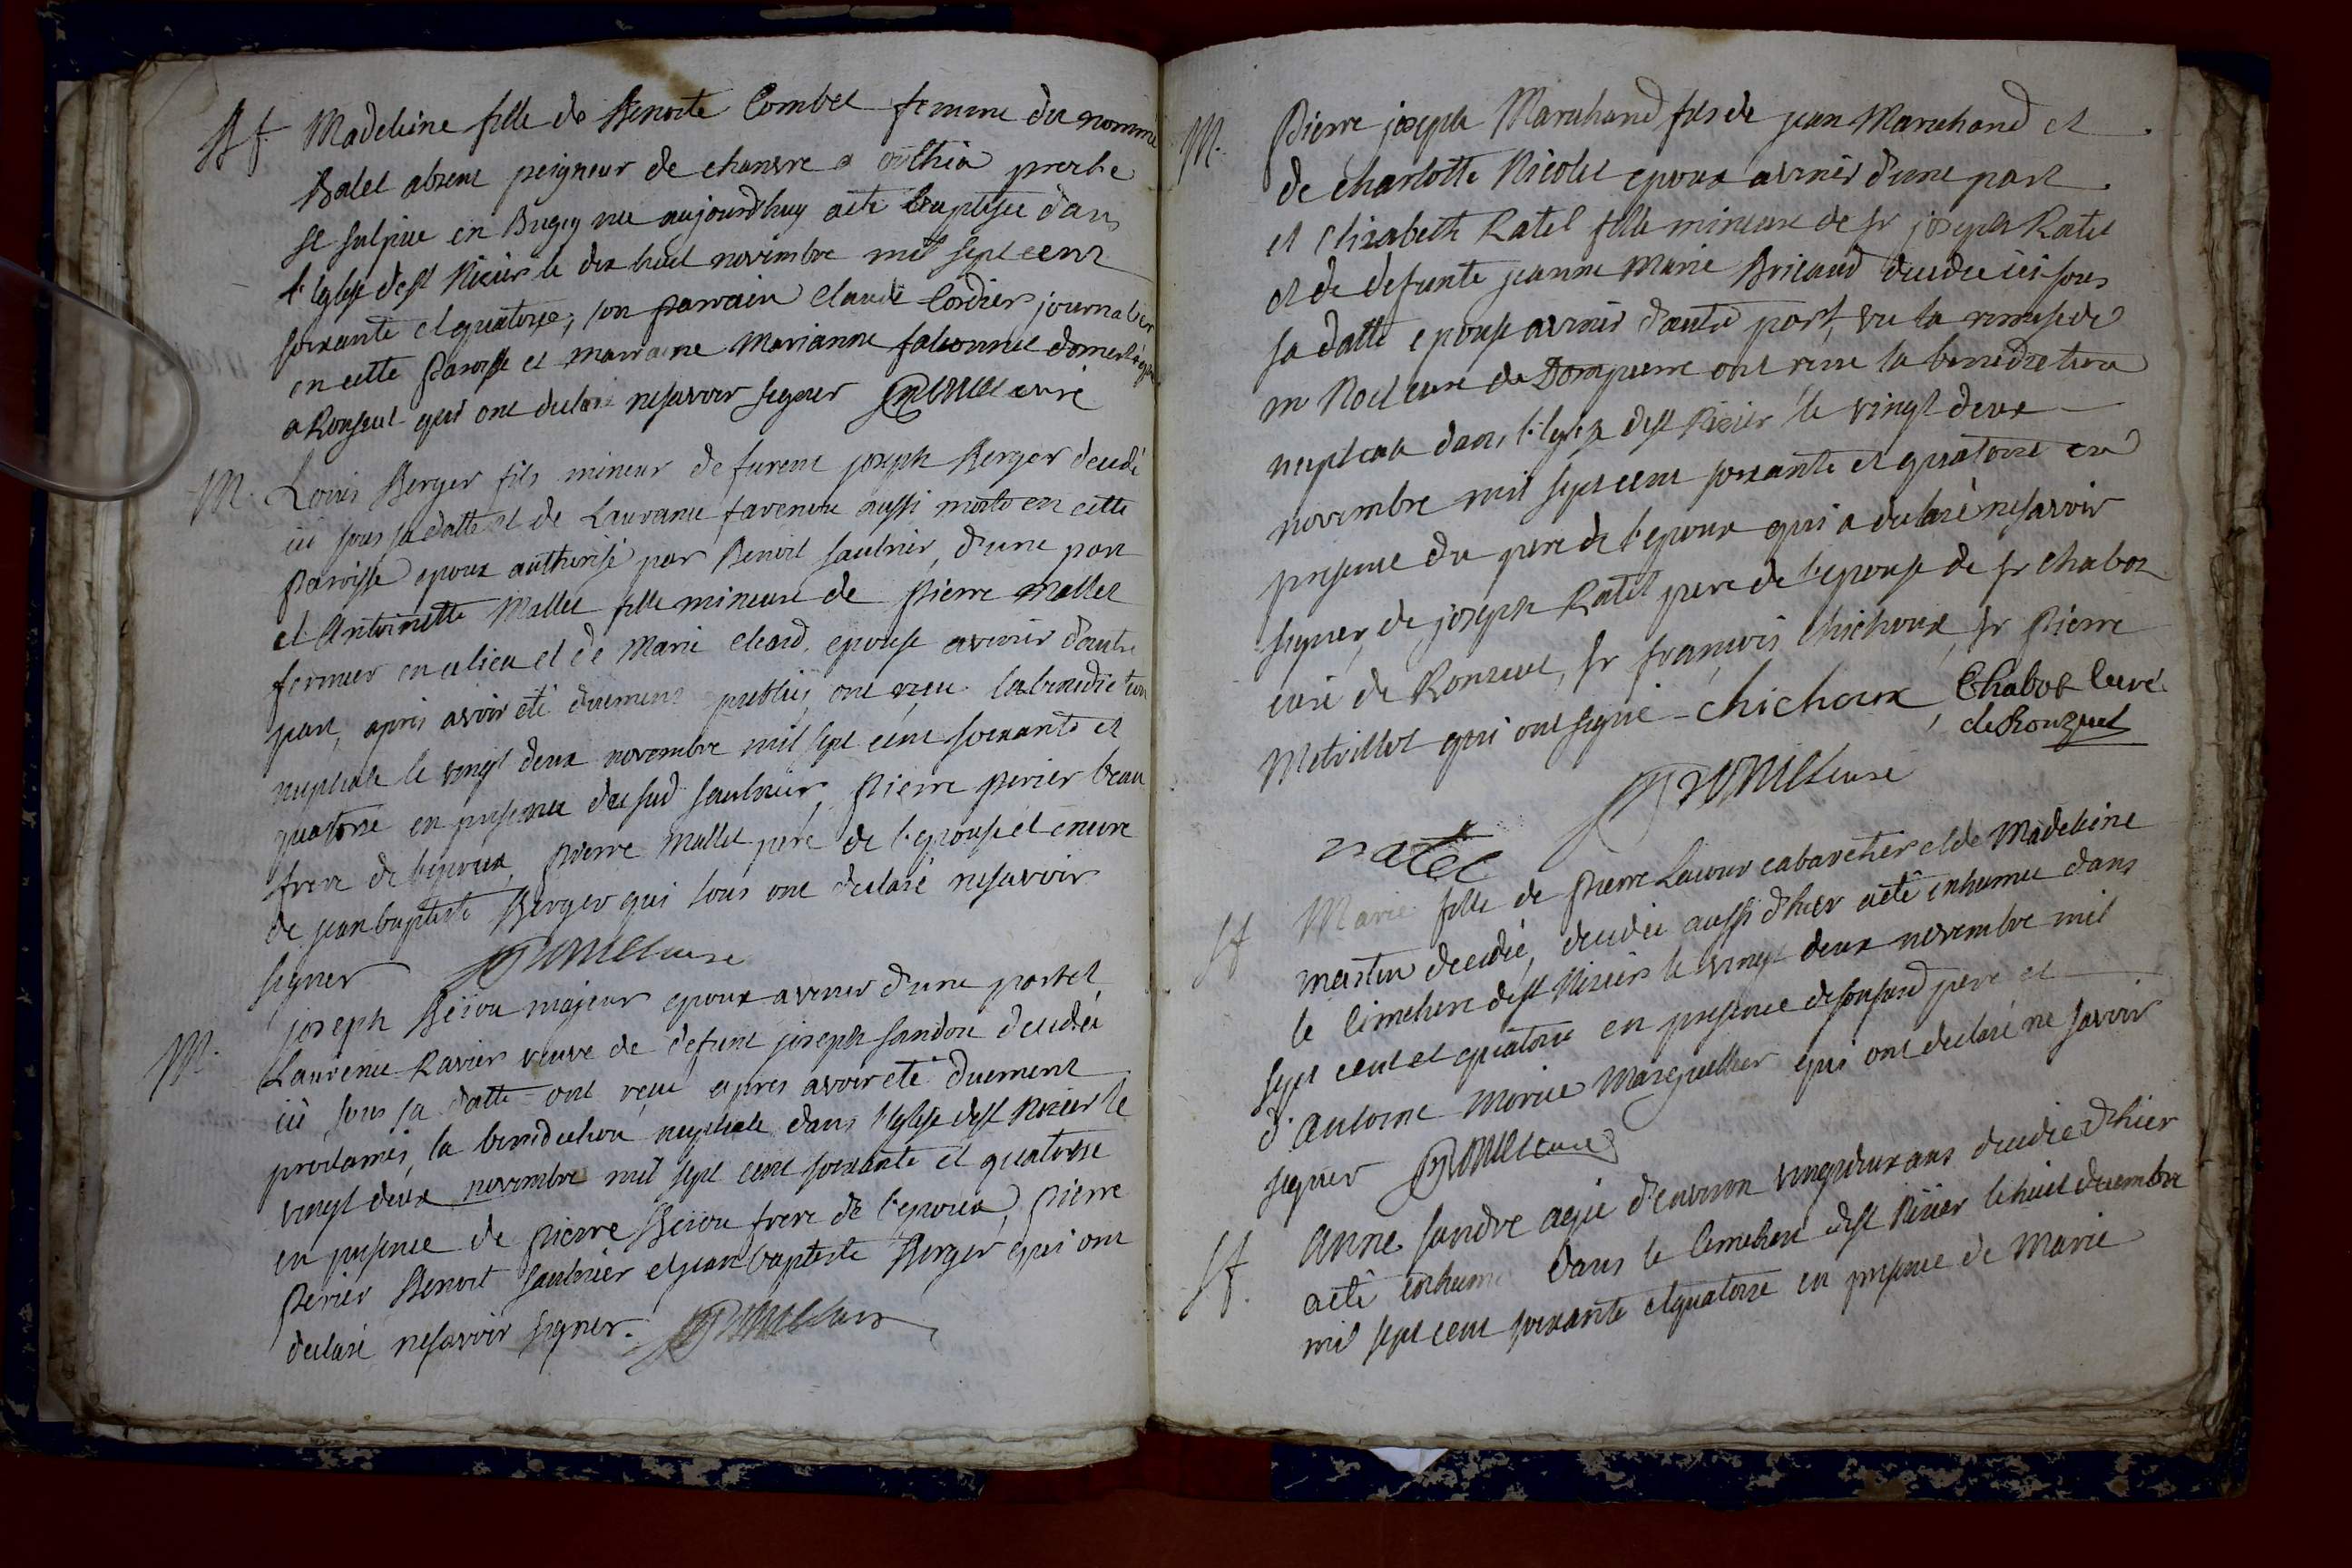 Bf. Madeleine fille de Benoite Combet femme du nommé
Balet absent peigneur de chanvre a proche
St sulpice en Bugey née aujourdhuy a été baptisée dans
l'eglise de St Nizier le dix huit novembre mil sept cent
soixante et quatorze; son parrain Claude Cordier journalier
en cette paroisse et marraine Marianne falconnet domestique
a Ronzuel qui ont déclaré ne savoir signer curé
M. Louis Berger fils mineur de furent joseph Berger décédé
ici sous sa datte et de Laurance favencre aussi morte en cette
paroisse epoux authorisé par Benoit saulnier, d'une part
et Antoinette Mallet fille mineure de pierre Mallet
fermier en ce lieu et de Marie epouse avenir d'autre
part, après avoir été duement publiés ont reçu la benediction
nuptiale le vingt deux novembre mil sept cent soixante et
quatorze en presence du sud saulnier, pierre perier beau
frere de l'epoux, pierre Mallet pere de l'epouse et encore
de jean baptiste Berger qui tous ont déclaré ne savoir
signer curé
M. joseph Beïou majeur epoux avenir d'une part et
Laurence Ravier veuve de defunt joseph sandon décédé
ici sous sa datte ont reçu apres avoir été duement
proclamés, la benediction nuptiale dans l'eglise de St Nizier le
vingt deux novembre mil sept cent soixante et quatorze
en presence de pierre Beïou frere de l'epoux, pierre
Perier Benoit saulnier et jean baptiste Berger qui ont
declaré ne savoir signer.
M. Pierre joseph Maruhand fils de jean Maruhand et
de charlotte Nicolet epoux avenir d'une part.
et Elizabeth Ratel fille mineure de sr joseph Ratel
et de defunte jeanne Marie Bricaud décédée ici sous
sa datte epouse avenir d'autre part, vu la remise de
mr Noel curé de Dompierre ont reçu la benediction
nuptiale dans l'eglise de St Nizier le vingt deux
novembre mil sept cent soixante et quatorze en
presence du pere de l'epoux qui a declaré ne savoir
signer, de joseph Ratel pere de l'epouse de sr chabot
curé de Ronzuel, sr françois Chichoux, sr Pierre
Metrillot qui ont signé chichoux, Chabot curé
de Ronzuel
curé
ratel
Sf Marie fille de pierre Lacour cabaretier et de Madeleine
martin decedée, décédée aussi d'hier a été inhumée dans
le cimetiere de St Nizier le vingt deux novembre mil
sept cent et quatorze en presence de son susd pere et
d'Antoine Morice Marguillier qui ont declaré ne savoir
signer curé
Sf. Anne sandre agée d'environ vingt deux ans décédée d'hier
a été inhumé dans le cimetiere de St Nizier le huit decembre
mil sept cent soixante et quatorze en presence de Marie